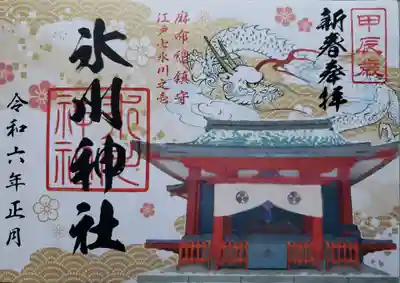 甲辰歳
新春奉拝
麻布総鎮守
江戸七氷川之壱
氷川神社
令和六年正月